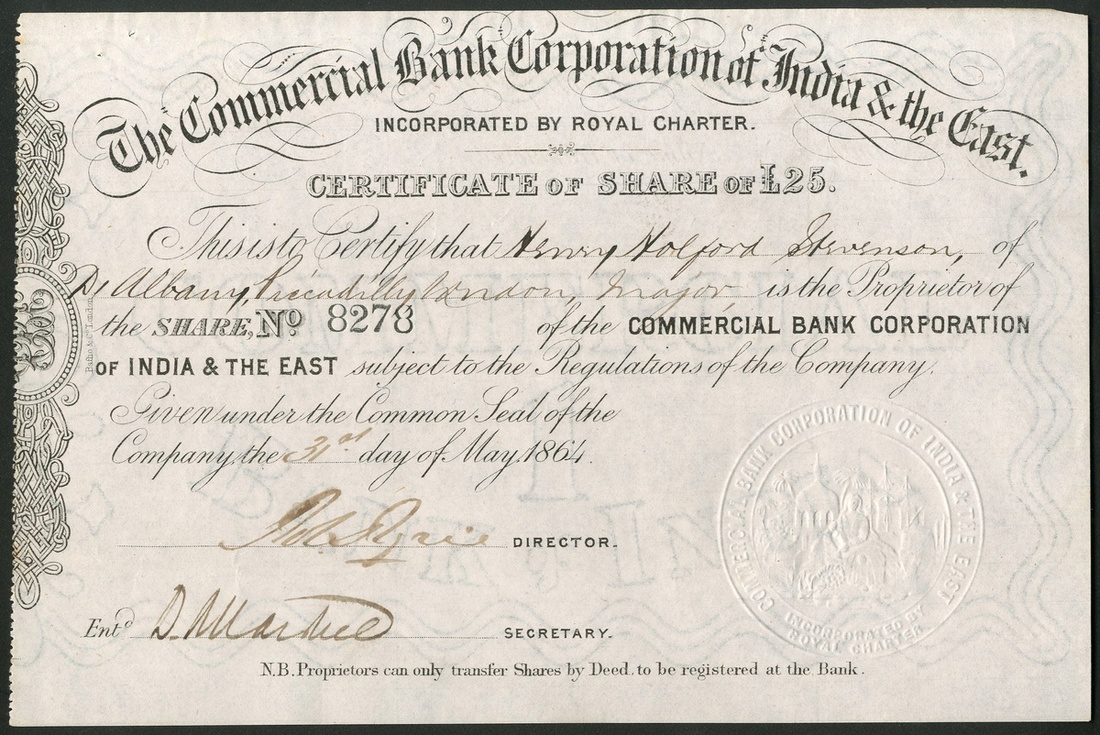 The Commercial Bank Corporation of India & the East.
INCORPORATED BY ROYAL CHARTER.
CERTIFICATE OF SHARE OF £25.
This is to Certify that Henry Holford Stevenson, of
Albany, Piccadilly London, Major is the Proprietor of
the SHARE, No 8278 of the COMMERCIAL BANK CORPORATION
OF INDIA & THE EAST subject to the Regulations of the Company.
Given under the Common Seal of the
Company, the 31st day of May, 1864.
DIRECTOR.
Entd. SECRETARY.
N.B. Proprietors can only transfer Shares by Deed, to be registered at the Bank.
COMMERCIAL BANK CORPORATION OF INDIA & THE EAST
INCORPORATED BY
ROYAL CHARTER